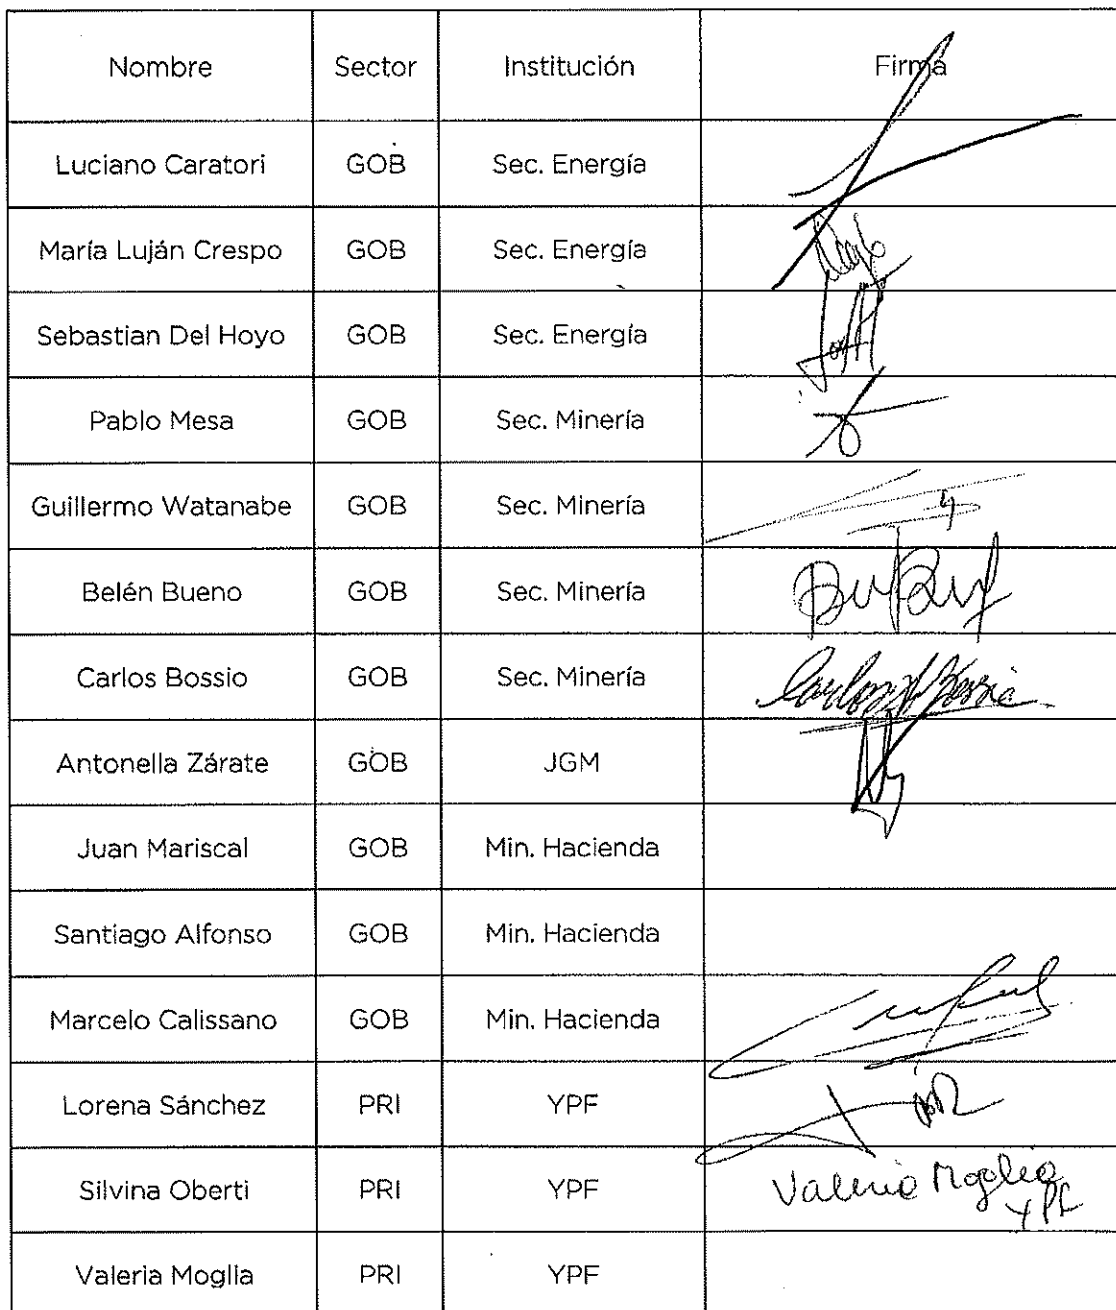 Nombre Sector Institución Firma
Luciano Caratori GOB Sec. Energía
María Luján Crespo GOB Sec. Energía
Sebastian Del Hoyo GOB Sec. Energía
Pablo Mesa GOB Sec. Minería
Guillermo Watanabe GOB Sec. Minería
Belén Bueno GOB Sec. Minería
Carlos Bossio GOB Sec. Minería
Antonella Zárate GOB JGM
Juan Mariscal GOB Min. Hacienda
Santiago Alfonso GOB Min. Hacienda
Marcelo Calissano GOB Min. Hacienda
Lorena Sánchez PRI YPF
Silvina Oberti PRI YPF Valeria Moglia
YPF
Valeria Moglia PRI YPF